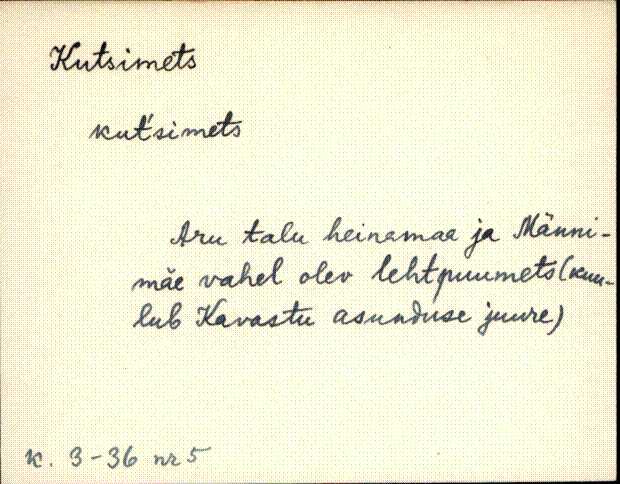 Kutsimets
kut'simets
Aru talu heinamaa ja Männi-
mäe vahel olev lehtpuumets (kuu-
lub Kavastu asunduse juure)
k. 3-36 nr 5